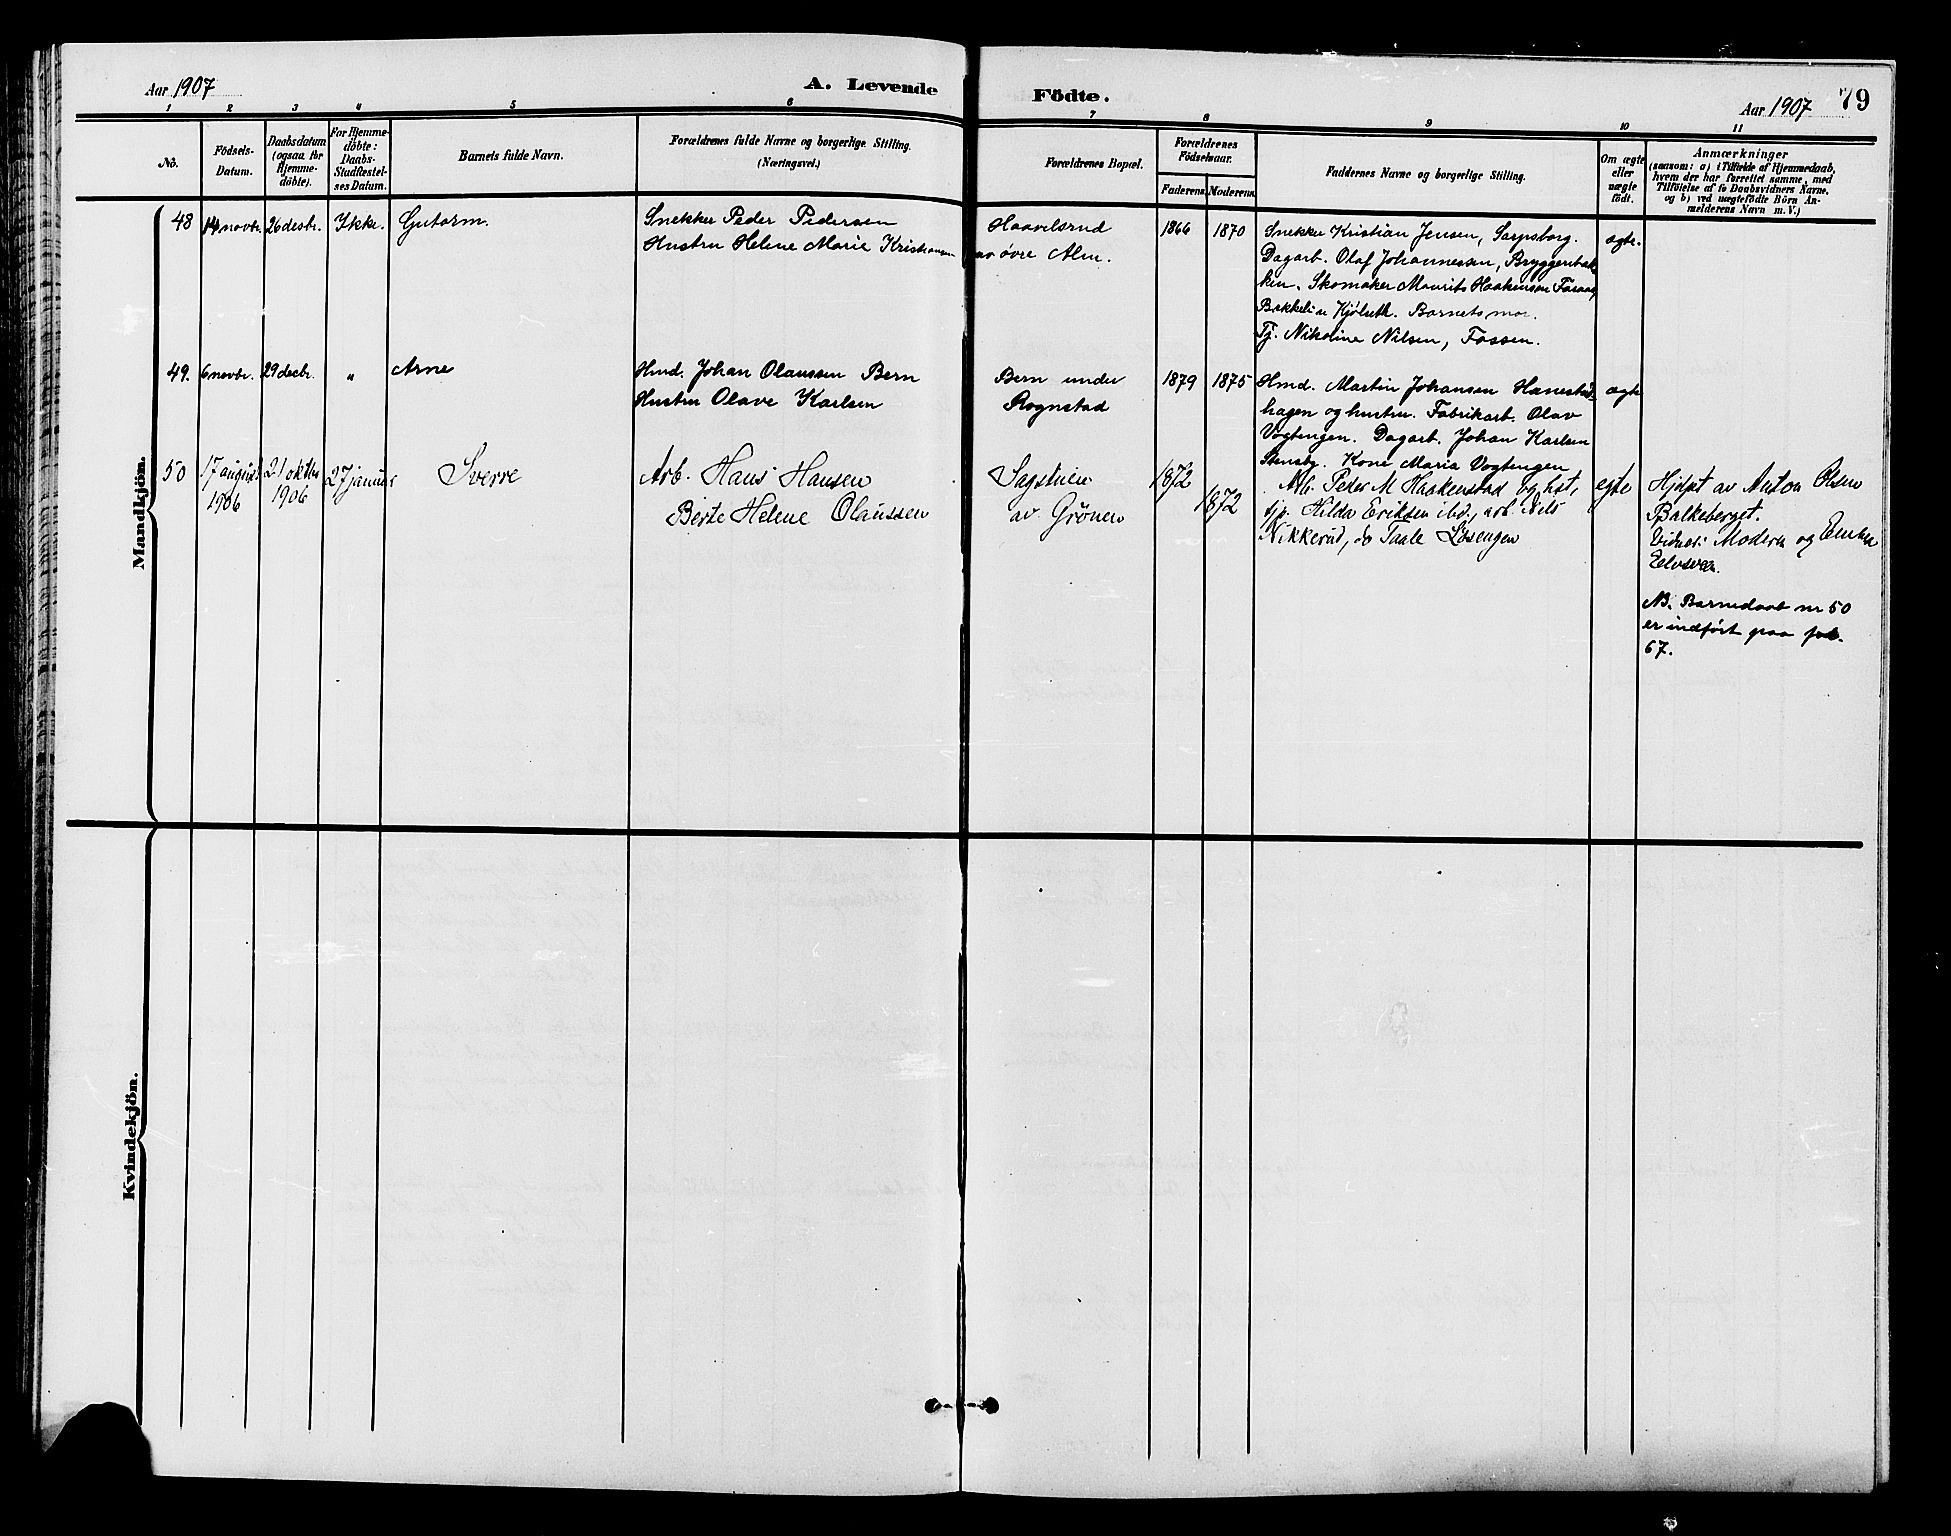 Aar 1907
A. Levende
Födte.
Aar 1907
79
1 2 3 4 5 6 7 8 9 10 11
No.
Födsels-
Datum.
Daabsdatum
(ogsaa for
Hjemme-
döbte).
For Hjemme-
döbte:
Daabs-
Stadfæstel-
ses Datum.
Barnets fulde Navn.
Forældrenes fulde Navne og borgerlige Stilling.
(Næringsvei.)
Forældrenes Bopæl.
Forældrenes
Födselsaar.
Faderens.
Moderens.
Faddernes Navne og borgerlige Stilling.
Om ægte
eller
uægte
födt.
Anmærkninger
(saasom: a) i Tilfælde af Hjemmedaab,
hvem der har forrettet samme, med
Tilföielse af to Daabsvidners Navne,
og b) ved uægtefödte Börn An-
melderens Navn m. V.)
Mandkjön.
48
14 novbr.
26 desbr.
Ikke.
Gutorm.
Snekker Peder Pedersen
Hustru Helene Marie Kristiansen
Haavelsrud
av øvre Alm.
1866
1870
Snekker Kristian Jensen, Sarpsborg.
Dagarb. Olaf Johannessen, Bryggeribak-
ken. Skomaker Maurits Haakensen
Kjølseth. Barnets mor.
Tj. Nikoline Nilsen, Fossen.
ægte.
49.
6 novbr.
29 decbr.
"
Arne
Hmd. Johan Olaussen Bern
Hustru Olave Karlsen
Bern under
Rognstad
1879
1875
Hmd. Martin Johansen Hanestad-
hagen og hustru. Fabrikarb. Olav
Vogtengen. Dagarb. Johan Karlsen
Stensby. Kone Maria Vogtengen
ægte
50
17 august
1906
21 oktbr
1906
27 januar
Sverre
Arb. Hans Hansen
Berte Helene Olaussen
Sagstuen
av Grönen
1872
1872
Arb. Peder M Haakenstad og hst,
pj. Hilda Eriksen ibd., arb. Nils
Nikkerud, do Taale Lösengen
egte
Hjdøpt av Anton Olsen
Balkeberget.
Vidner: Modern og
NB. Barnedaab nr 50
er indført paa fol.
67.
Kvindekjön.